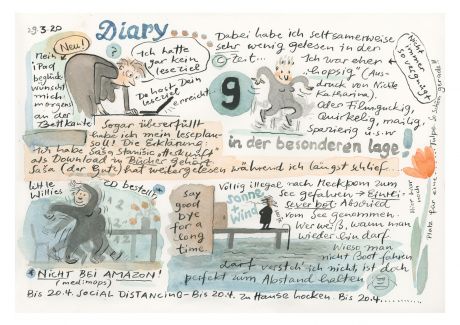 29.3.20
Diary....
Neu!
?
Mein
iPad
beglück-
wünscht
mich
morgens
an der
Bettkante!
"Ich hatte
gar kein
Leseziel
Du hast Dein
Leseziel
erreicht...
Dabei habe ich seltsamerweise
sehr wenig gelesen in der
C-Zeit...
Ich war eher
"hopsig" (Aus-
druck von Nichte
Marina).
Oder Filmguckig,
Quirkelig, mailig,
Spazierig usw
Nicht
immer
so
9
in der besonderen Lage!
Sogar übererfüllt
habe ich mein Leseplan-
soll! Die Erklärung:
Ich habe Saša Stanišić "Herkunft"
als Download in Bücher gehört.
Saša (der Gute) hat weitergelesen während ich längst schlief...
Little
Willies
CD bestellt
*NICHT BEI AMAZON!
(medimops)
say
good
bye
for a
long
time.
Sonne
Wind
Völlig illegal nach Meckpom zum
See gefahren → Einrei-
severbot Abschied
vom See genommen.
Wer weiß, wann man
wieder hin darf.
Wieso man
nicht Boot fahren
darf versteh ich nicht, ist doch
perfekt zum Abstand halten
Bis 20.4. SOCIAL DISTANCING - Bis 20.4. zu Hause hocken. Bis 20.4.........